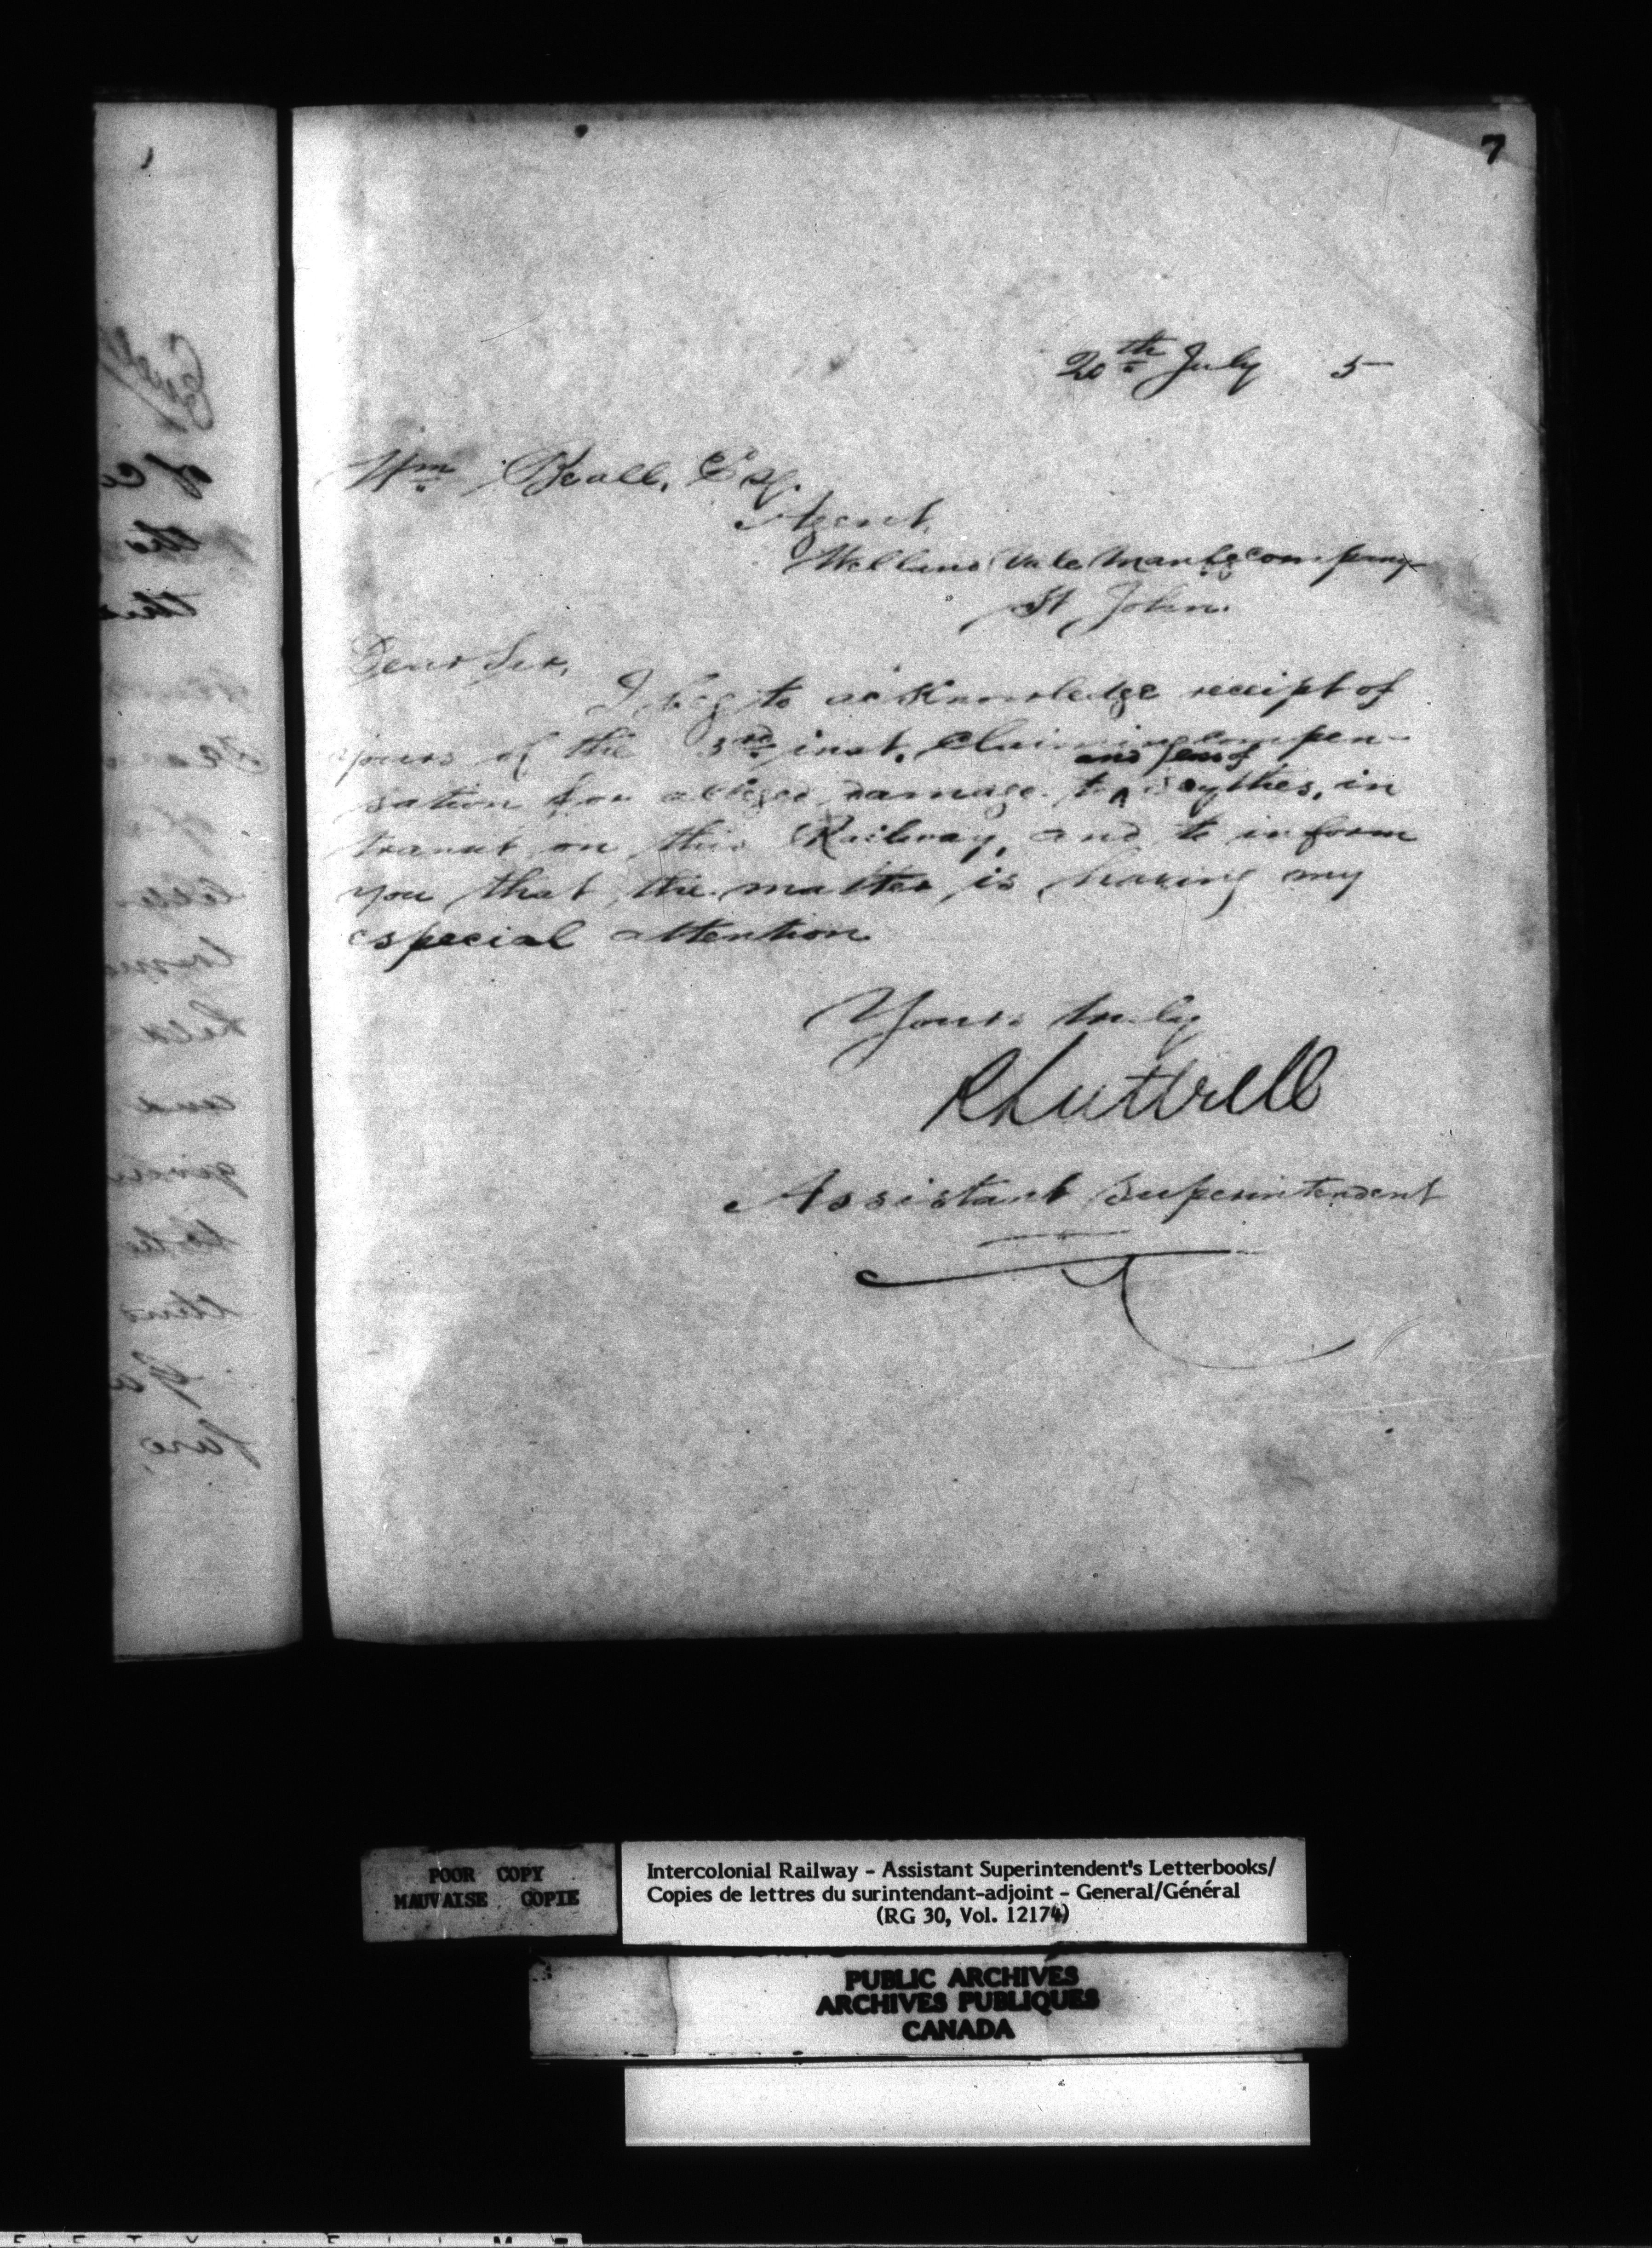 7
20th July 5
Wm Beall, Esq.
Agent,
Welland Vale Manfg company
St John.
Dear Sir,
I beg to acknowledge receipt of
yours of the 3rd inst. claiming compen-
sation for alleged damage to and loss of scythes, in
transit on this Railway, and to inform
you that the matter is having my
especial attention
Yours truly
R Luttrell
Assistant Superintendent
POOR COPY
MAUVAISE COPIE
Intercolonial Railway - Assistant Superintendent's Letterbooks/
Copies de lettres du surintendant-adjoint - General/Général
(RG 30, Vol. 12174)
PUBLIC ARCHIVES
ARCHIVES PUBLIQUES
CANADA